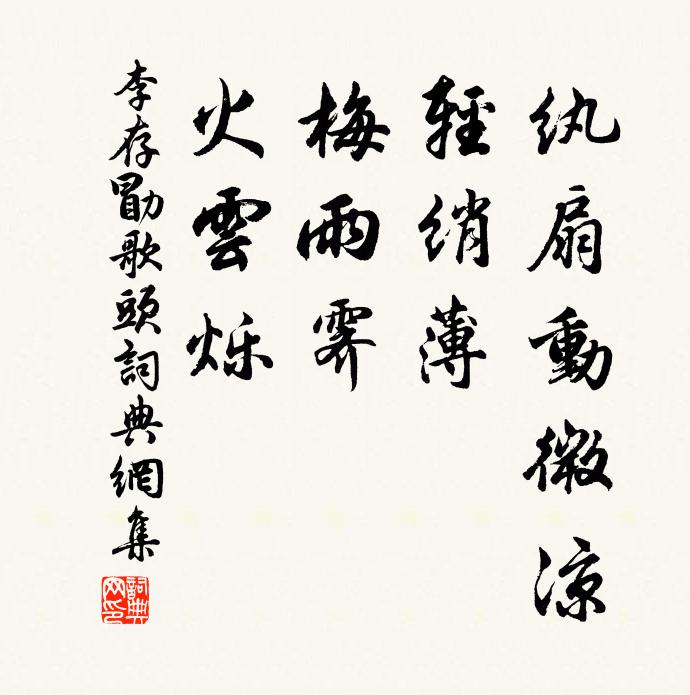 纨扇動微涼
輕绡薄
梅雨霁
火雲烁
李存勖歌頭詞典網集
詞典网印